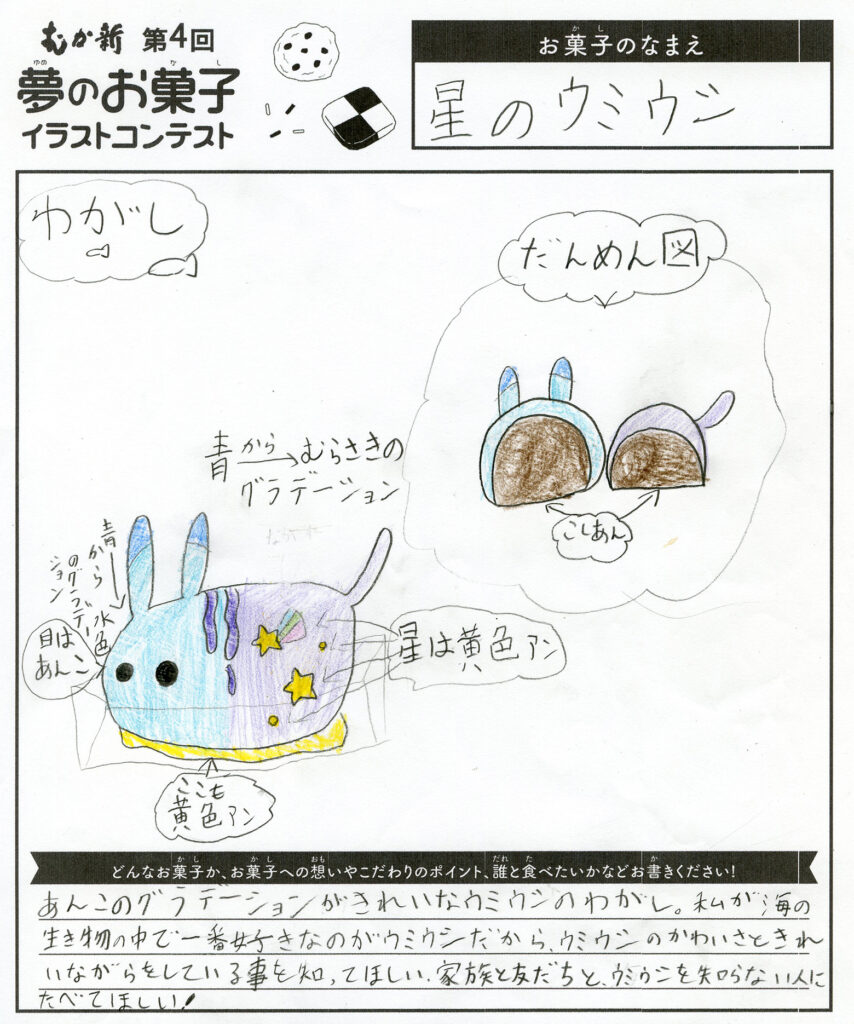 むか新 第4回
夢のお菓子
ゆめ
か
し
イラストコンテスト
お菓子のなまえ
か し
星のウミウシ
わがし
だんめん図
青から→むらさきの
グラデーション
こしあん
青から→水色
のグラデー
ション
目は
あんこ
星は黄色アン
ここも
黄色アン
どんなお菓子か、お菓子への想いやこだわりのポイント、誰と食べたいかなどお書きください!
か し
か し
おも
だれ
た
か
あんこのグラデーションがきれいなウミウシのわがし。私が海の
生き物の中で一番好きなのがウミウシだから、ウミウシのかわいさときれ
いながらをしている事を知ってほしい、家族と友だちと、ウミウシを知らない人に
たべてほしい!